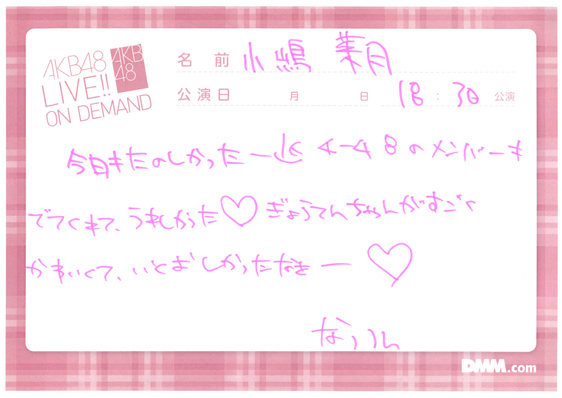 AKB48
LIVE!!
ON DEMAND
AKB
48
名前 小嶋 菜月
公演日 月 日 18:30 公演
今日もたのしかったー 4 8のメンバーも
でてくれて、うれしかった♡ぎょうてんちゃんがすごく
かわいくて、いとおしかったなぁー♡
なっつん
DMM.com